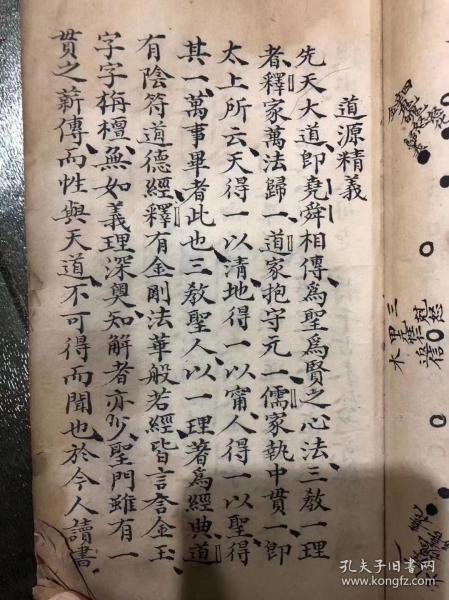 道源精義
先天大道、即堯舜相傳、爲聖爲賢之心法、三教一理
者、釋家萬法歸一、道家抱守元一、儒家執中貫一、即
太上所云、天得一以清、地得一以甯、人得一以聖、得
其一、萬事畢者此也、三教聖人、以一理著爲經典、道
有陰符道德經、釋有金剛法華般若經、皆言含金玉、
字字栴檀、無如義理深奧、知解者亦少、聖門雖有一
貫之薪傳、而性與天道、不可得而聞也、於今人讀書
三
甲
木
孔夫子旧书网
www.kongfz.com